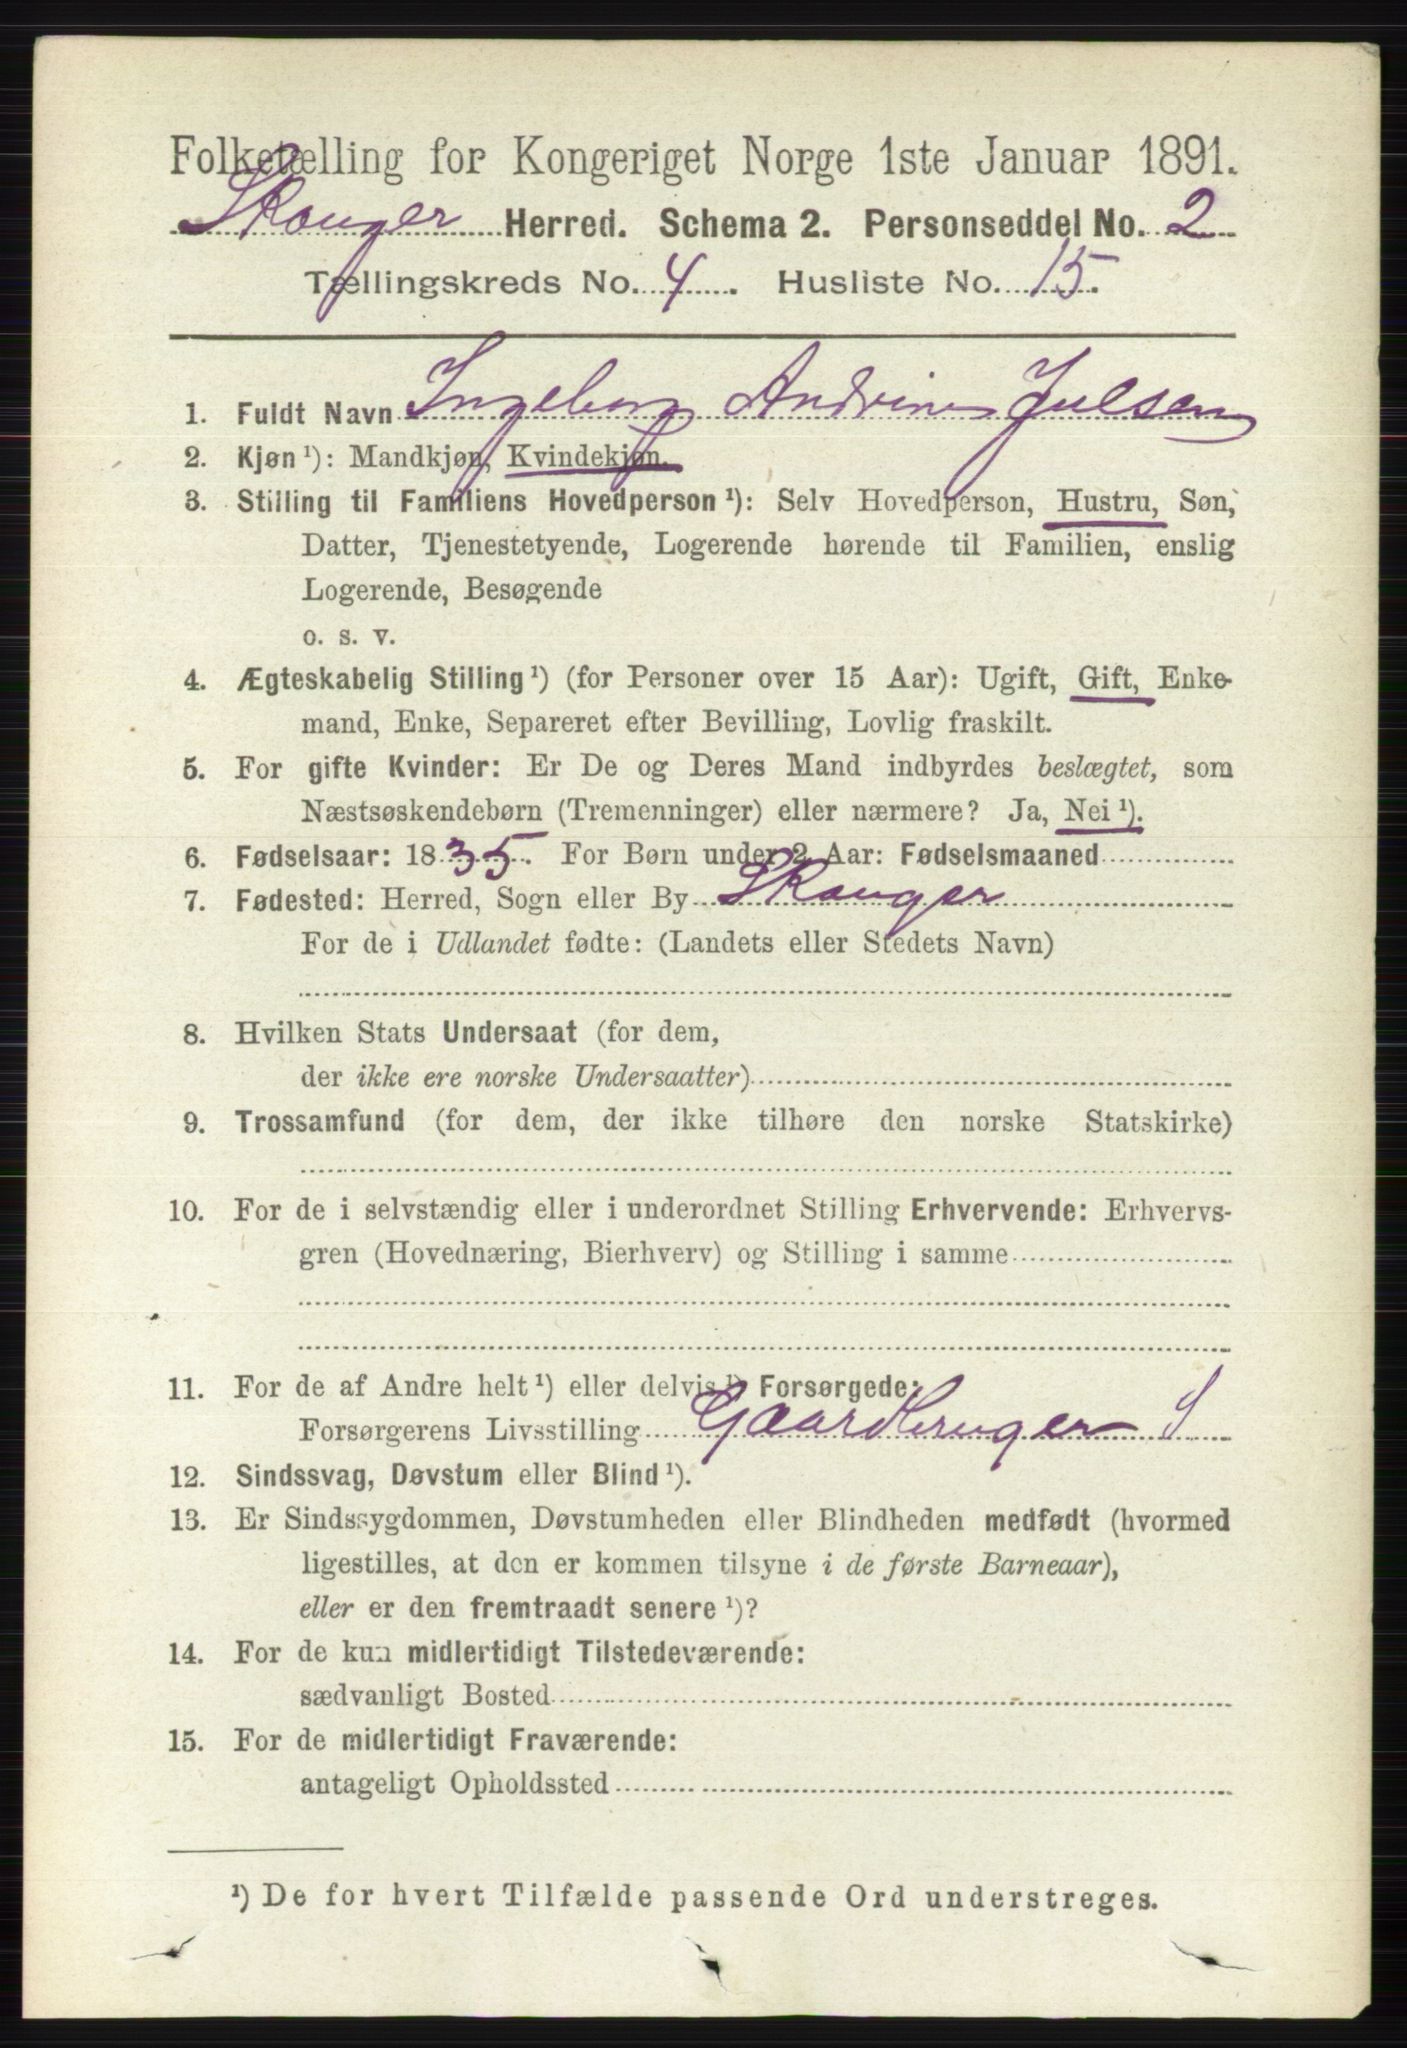 Folketælling for Kongeriget Norge 1ste Januar 1891.
Skouger Herred. Schema 2. Personseddel No. 2
Tællingskreds No. 4. Husliste No. 15.
1. Fuldt Navn Ingeborg Andrine Julsen
2. Kjøn ¹): Mandkjøn, Kvindekjøn.
3. Stilling til Familiens Hovedperson ¹): Selv Hovedperson, Hustru, Søn,
Datter, Tjenestetyende, Logerende hørende til Familien, enslig
Logerende, Besøgende
o. s. v.
4. Ægteskabelig Stilling ¹) (for Personer over 15 Aar): Ugift, Gift, Enke-
mand, Enke, Separeret efter Bevilling, Lovlig fraskilt.
5. For gifte Kvinder: Er De og Deres Mand indbyrdes beslægtet, som
Næstsøskendebørn (Tremenninger) eller nærmere? Ja, Nei ¹).
6. Fødselsaar: 1835. For Børn under 2 Aar: Fødselsmaaned
7. Fødested: Herred, Sogn eller By Skouger
For de i Udlandet fødte: (Landets eller Stedets Navn)
8. Hvilken Stats Undersaat (for dem,
der ikke ere norske Undersaatter)
9. Trossamfund (for dem, der ikke tilhøre den norske Statskirke)
10. For de i selvstændig eller i underordnet Stilling Erhvervende: Erhvervs-
gren (Hovednæring, Bierhverv) og Stilling i samme
11. For de af Andre helt ¹) eller delvis ¹) Forsørgede:
Forsørgerens Livsstilling Gaardbruger S
12. Sindssvag, Døvstum eller Blind ¹).
13. Er Sindssygdommen, Døvstumheden eller Blindheden medfødt (hvormed
ligestilles, at den er kommen tilsyne i de første Barneaar),
eller er den fremtraadt senere ¹)?
14. For de kun midlertidigt Tilstedeværende:
sædvanligt Bosted
15. For de midlertidigt Fraværende:
antageligt Opholdssted
¹) De for hvert Tilfælde passende Ord understreges.